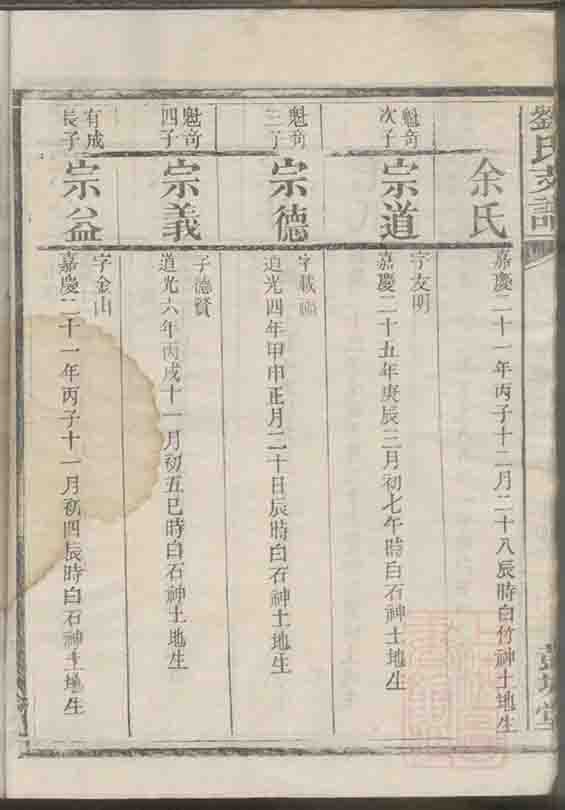 劉氏支譜
余氏
嘉慶二十一年丙子十二月二十八辰時白竹神土地生
魁奇
次子
宗道
字友明
嘉慶二十五年庚辰三月初七午時白石神土地生
魁奇
三子
宗德
字載
道光四年甲申正月二十日辰時白石神土地生
魁奇
四子
宗義
字德賢
道光六年丙戌十一月初五巳時白石神土地生
有成
長子
宗益
字金山
嘉慶二十一年丙子十一月初四辰時白石神土地生
堂